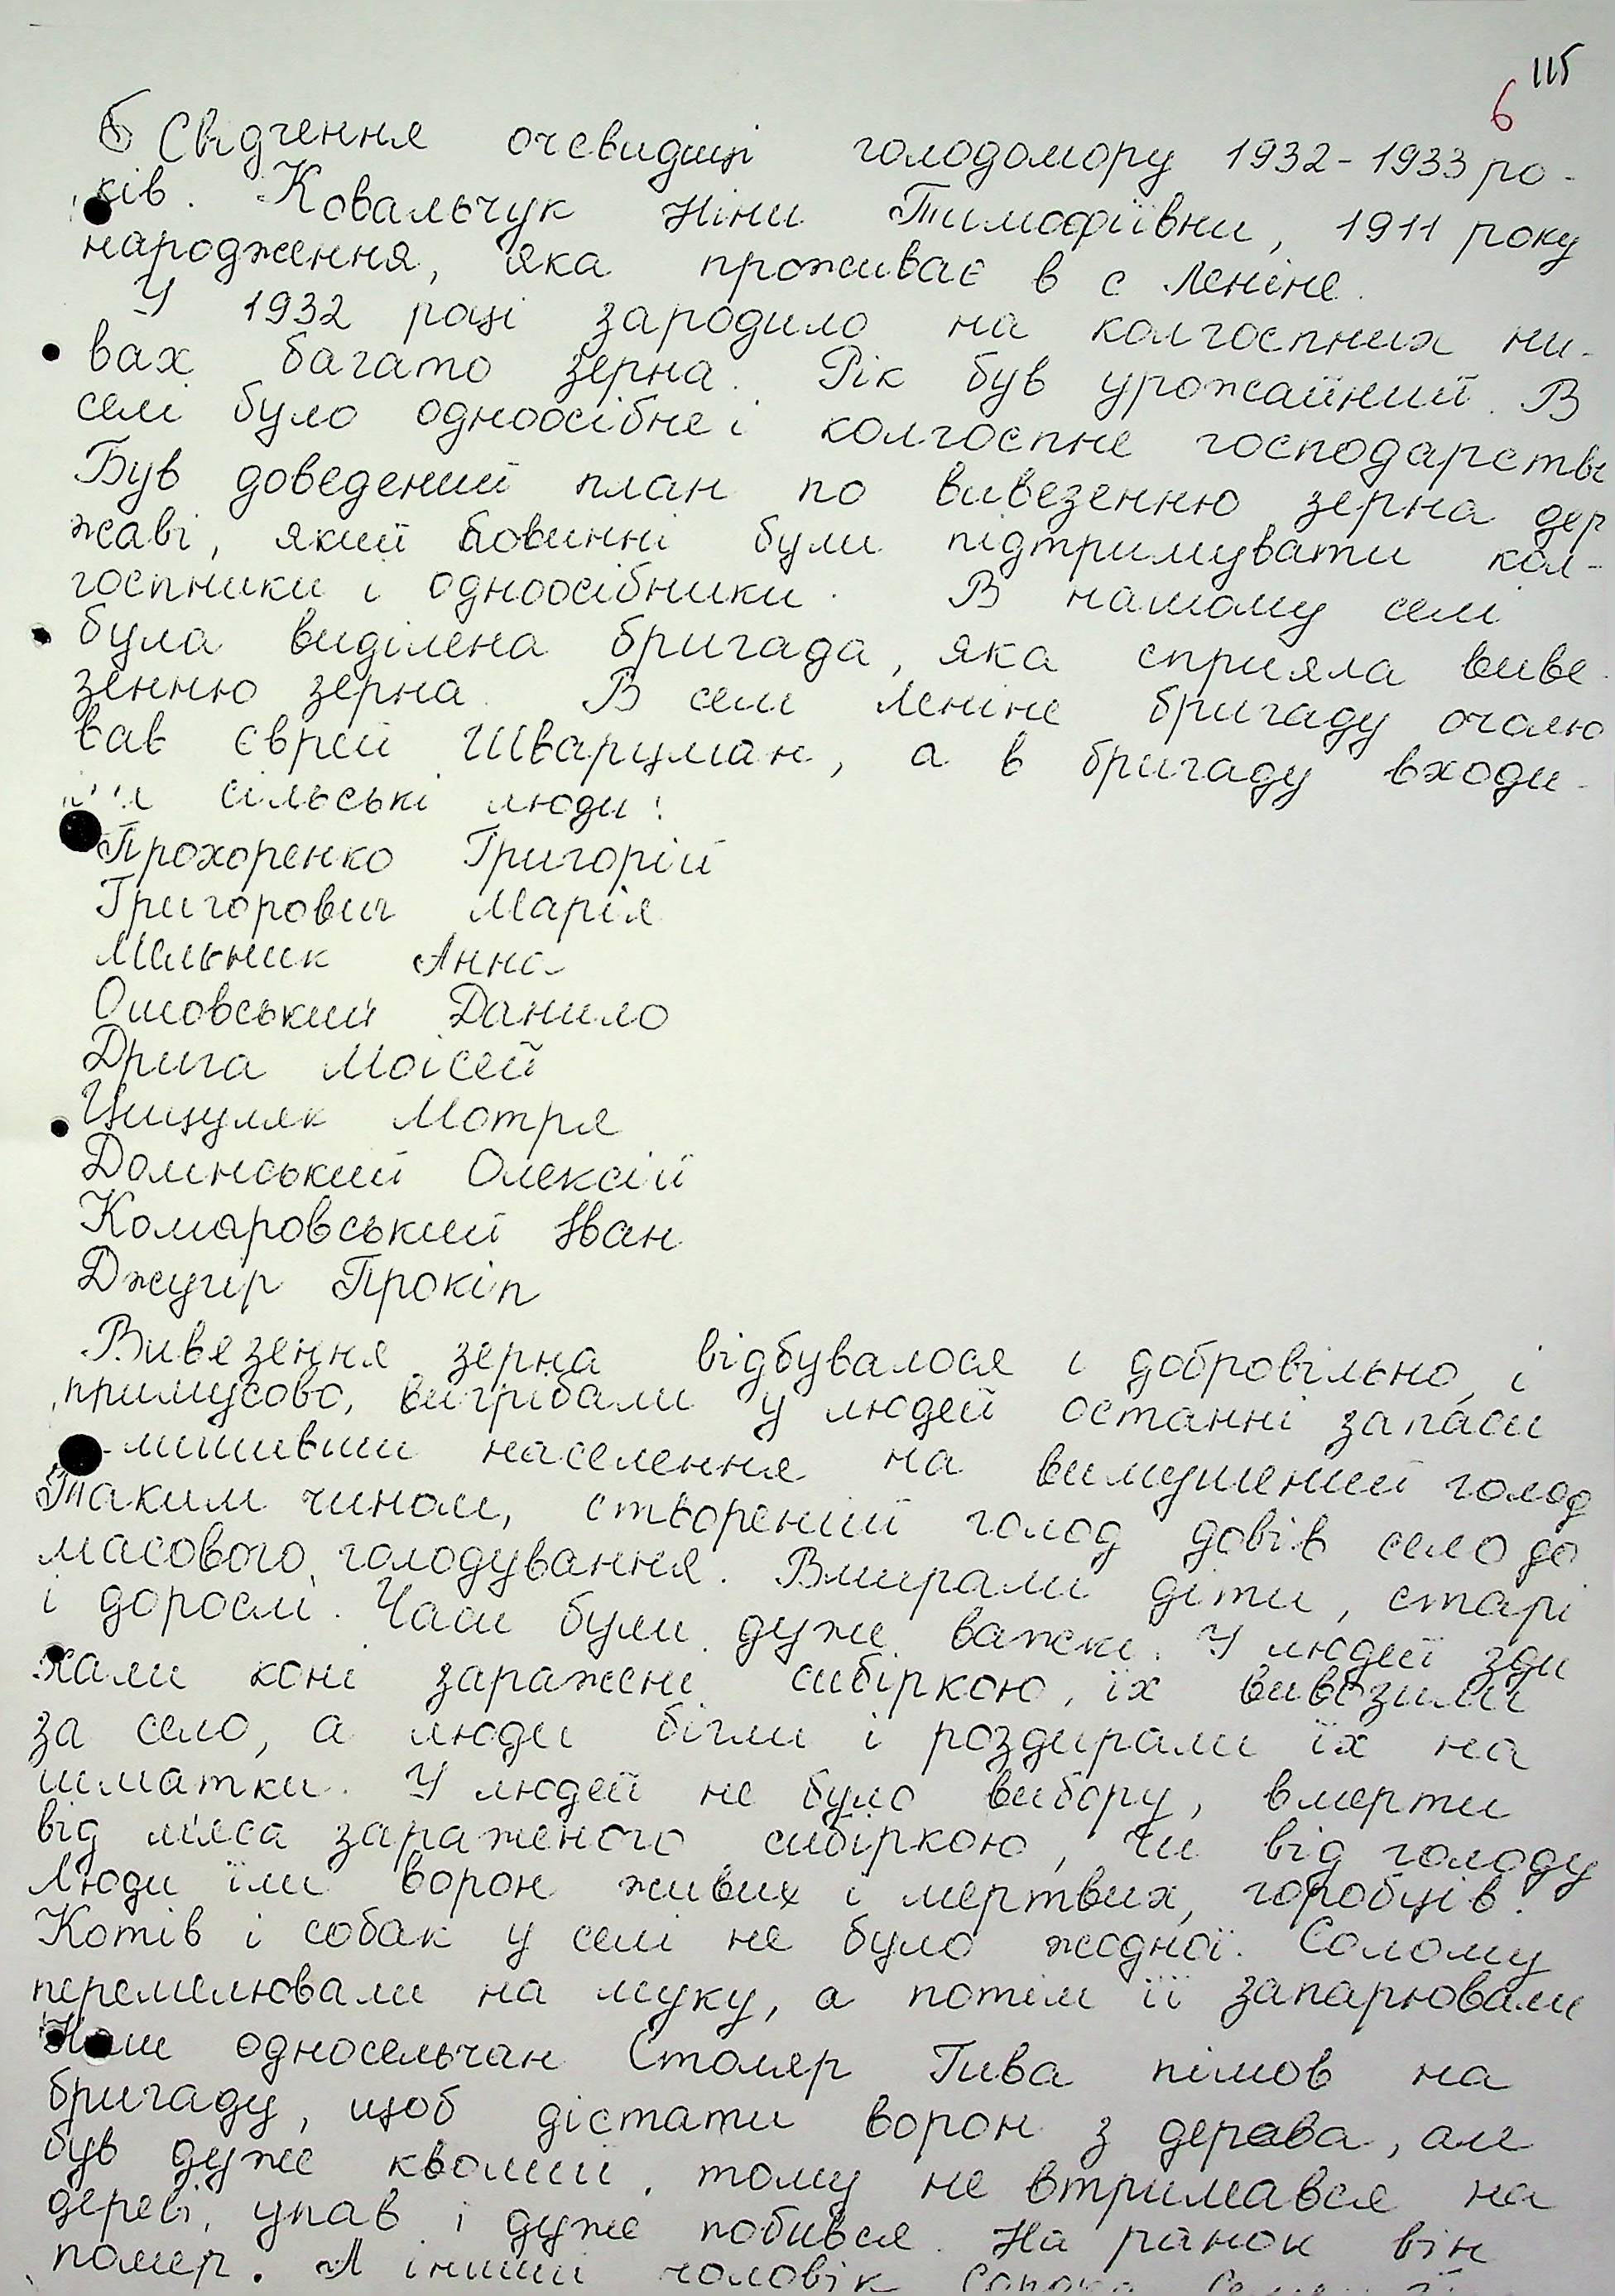 115
6
Свідчення очевидці голодомору 1932-1933 ро-
ків. Ковальчук Ніни Тимофіївни, 1911 року
народження, яка проживає в с Леніне.
У 1932 році зародило на колгоспних ни-
вах багато зерна. Рік був урожайний. В
селі було одноосібне і колгоспне господарство
Був доведений план по вивезенню зерна дер
жаві, який повинні були підтримувати кол-
госпники і одноосібники. В нашому селі
була виділена бригада, яка сприяла виве-
зенню зерна. В селі Леніне бригаду очолю
вав єврей Шварцман, а в бригаду входи-
сільські люди:
Прохоренко Григорій
Григорович Марія
Мельник Анна
Ошовський Данило
Дрига Моісей
Цицуляк Мотря
Долинський Олексій
Комаровський Іван
Джугір Прокіп
Вивезення зерна відбувалося і добровільно, і
примусово, вигрібали у людей останні запаси
-лишивши населення на вимушений голод
Таким чином, створений голод довів село до
масового голодування. Вмирали діти, старі
і дорослі. Часи були дуже важкі. У людей зди
хали коні заражені сибіркою, їх вивозили
за село, а люди бігли і роздирали їх на
шматки. У людей не було вибору, вмерти
від м'яса зараженого сибіркою, чи від голоду
Люди їли ворон живих і мертвих, горобців.
Котів і собак у селі не було жодної. Солому
перемелювали на муку, а потім її запарювали
Наш односельчан Столяр Гива пішов на
бригаду, щоб дістати ворон з дерева, але
був дуже кволий, тому не втримався на
дереві, упав і дуже побився. На ранок він
помер. А інший чоловік